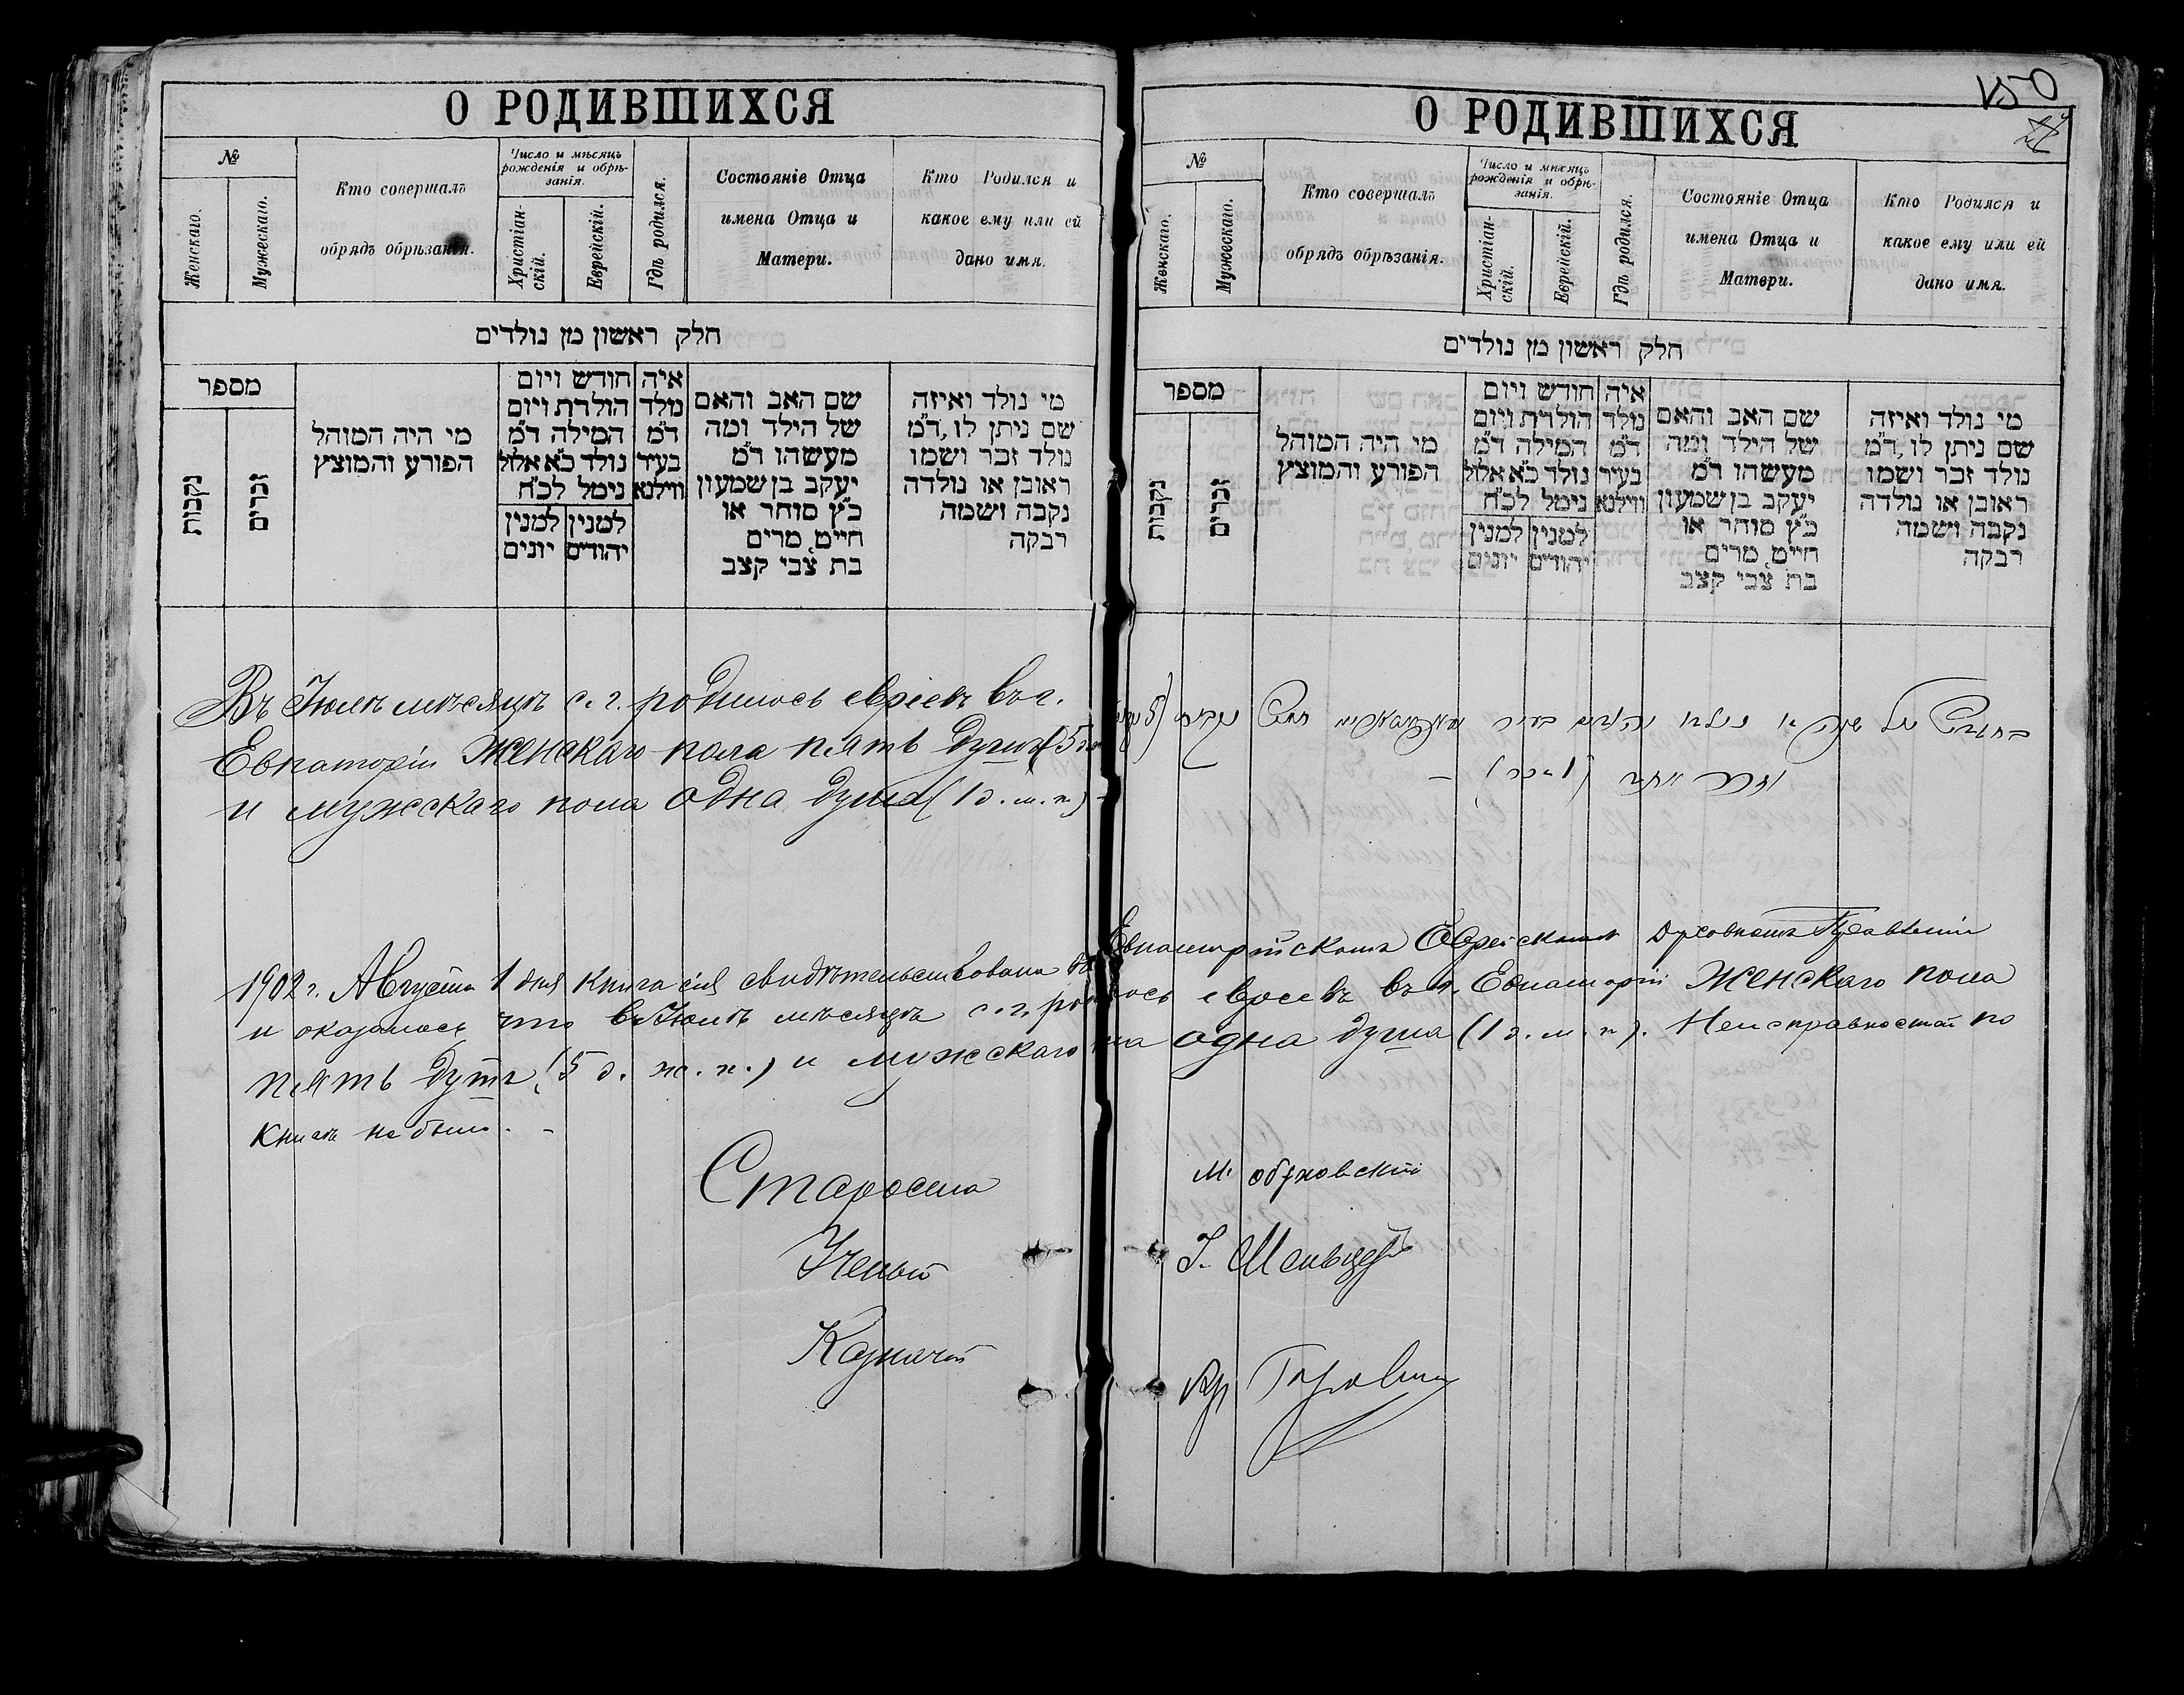 О РОДИВШИХСЯ
№
Женскаго.
Мужескаго.
Кто совершалъ
обрядъ обрѣзанія.
Число и мѣсяцъ
рожденія и обрѣ-
занія.
Христіан-
скій.
Еврейскій.
Гдѣ родился.
Состояніе Отца
имена Отца и
Матери.
Кто Родился и
какое ему или ей
дано имя.
חלק ראשון מן נולדים
מספר
נקבות
זכרים
מי היה המוהל
הפורע והמוצץ
חודש ויום
הולדת ויום
המילה ד"מ
נולד כ"א אלול
נימל לכ"ח
למנין
יהודים
למנין
יונים
איה
נולד
ד"מ
בעיר
ווילנא
שם האב והאם
של הילד ומה
מעשהו ד"מ
יעקב בן שמעון
כ"ץ סוחר או
חייט, מרים
בת צבי קצב
מי נולד ואיזה
שם ניתן לו, ד"מ
נולד זכר ושמו
ראובן או נולדה
נקבה ושמה
רבקה
Въ Іюлѣ мѣсяцѣ с. г. родилось евреевъ въ г.
Евпаторіи Женскаго пола пять душъ (5 д.
и мужскаго пола одна душа (1 д. м. п.) -
О РОДИВШИХСЯ
150
№
Женскаго.
Мужескаго.
Кто совершалъ
обрядъ обрѣзанія.
Число и мѣсяцъ
рожденія и обрѣ-
занія.
Христіан-
скій.
Еврейскій.
Гдѣ родился.
Состояніе Отца
имена Отца и
Матери.
Кто Родился и
какое ему или ей
дано имя.
חלק ראשון מן נולדים
מספר
נקבות
זכרים
מי היה המוהל
הפורע והמוצץ
חודש ויום
הולדת ויום
המילה ד"מ
נולד כ"א אלול
נימל לכ"ח
למנין
יהודים
למנין
יונים
איה
נולד
ד"מ
בעיר
ווילנא
שם האב והאם
של הילד ומה
מעשהו ד"מ
יעקב בן שמעון
כ"ץ סוחר או
חייט, מרים
בת צבי קצב
מי נולד ואיזה
שם ניתן לו, ד"מ
נולד זכר ושמו
ראובן או נולדה
נקבה ושמה
רבקה
1902 г. Августа 1 дня книга сія свидѣтельствована въ Евпаторійскомъ Еврейскомъ Духовномъ Правленіи
и оказалось что въ Іюлѣ мѣсяцѣ с. г. родилось евреевъ въ г. Евпаторіи Женскаго пола
пять душъ (5 д. ж. п.) и мужскаго пола одна душа (1 д. м. п.). Неисправностей по
книгѣ не было. -
Староста М.
Ученый
Казначей